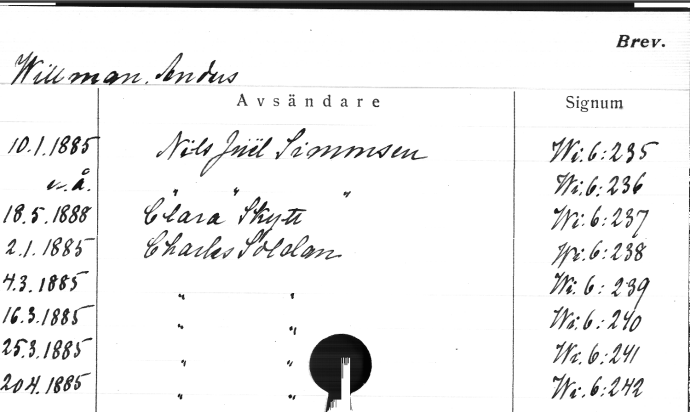 Brev.
Willman. Anders
Avsändare Signum
10.1.1885 Nils Juël Simonsen Wi.6:235
u. å. " " " Wi.6:236
18.5.1888 Clara Skytt Wi.6:237
2.1.1885 Charles Soldan Wi.6:238
4.3.1885 " " Wi.6:239
16.3.1885 " " Wi.6:240
25.3.1885 " " Wi.6:241
20.4.1885 " " Wi.6:242